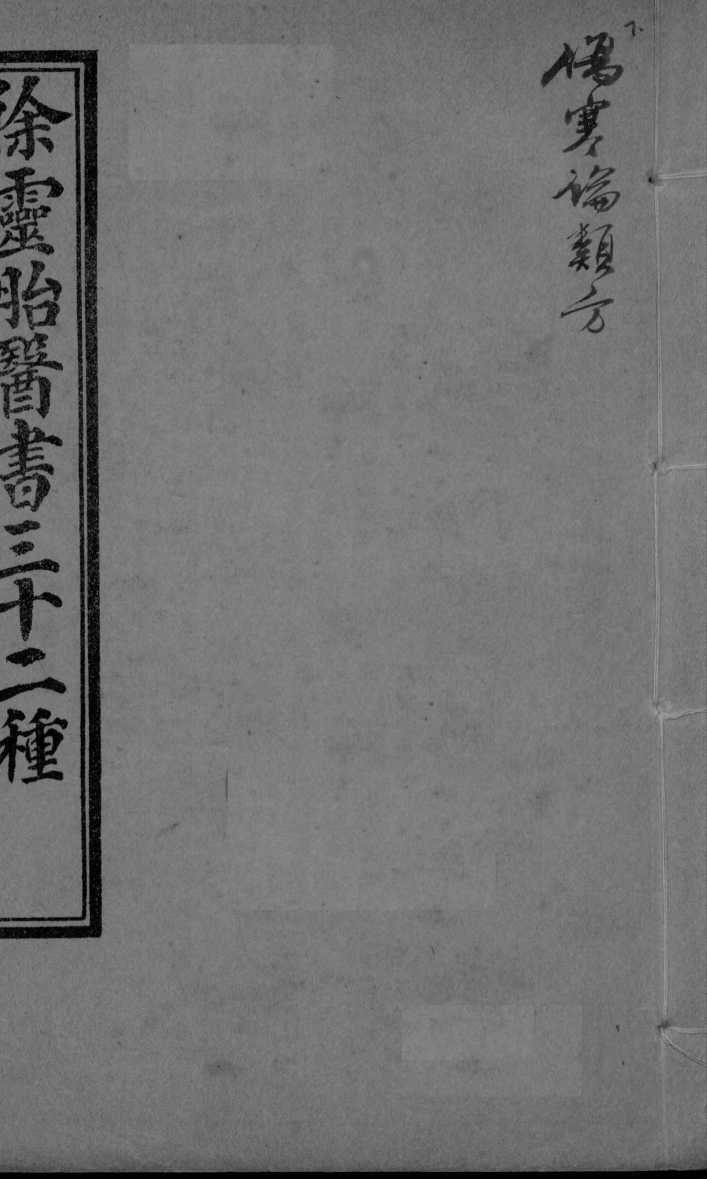 傷寒論類方
徐靈胎醫書三十二種